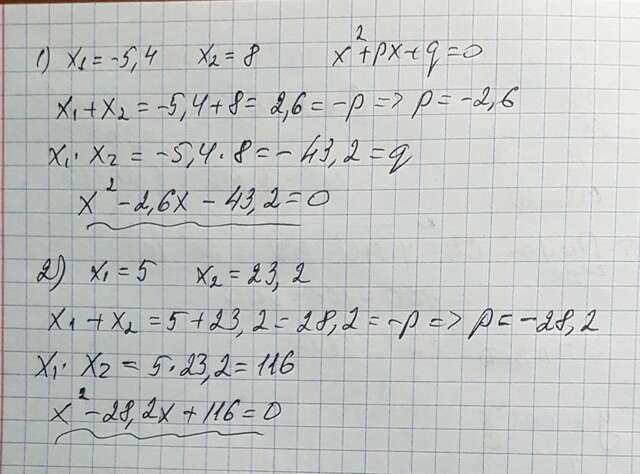 1) x₁ = -5,4 x₂ = 8 x² + px + q = 0
x₁ + x₂ = -5,4 + 8 = 2,6 = -p => p = -2,6
x₁ · x₂ = -5,4 · 8 = -43,2 = q
x² - 2,6x - 43,2 = 0
2) x₁ = 5 x₂ = 23,2
x₁ + x₂ = 5 + 23,2 = 28,2 = -p => p = -28,2
x₁ · x₂ = 5 · 23,2 = 116
x² - 28,2x + 116 = 0